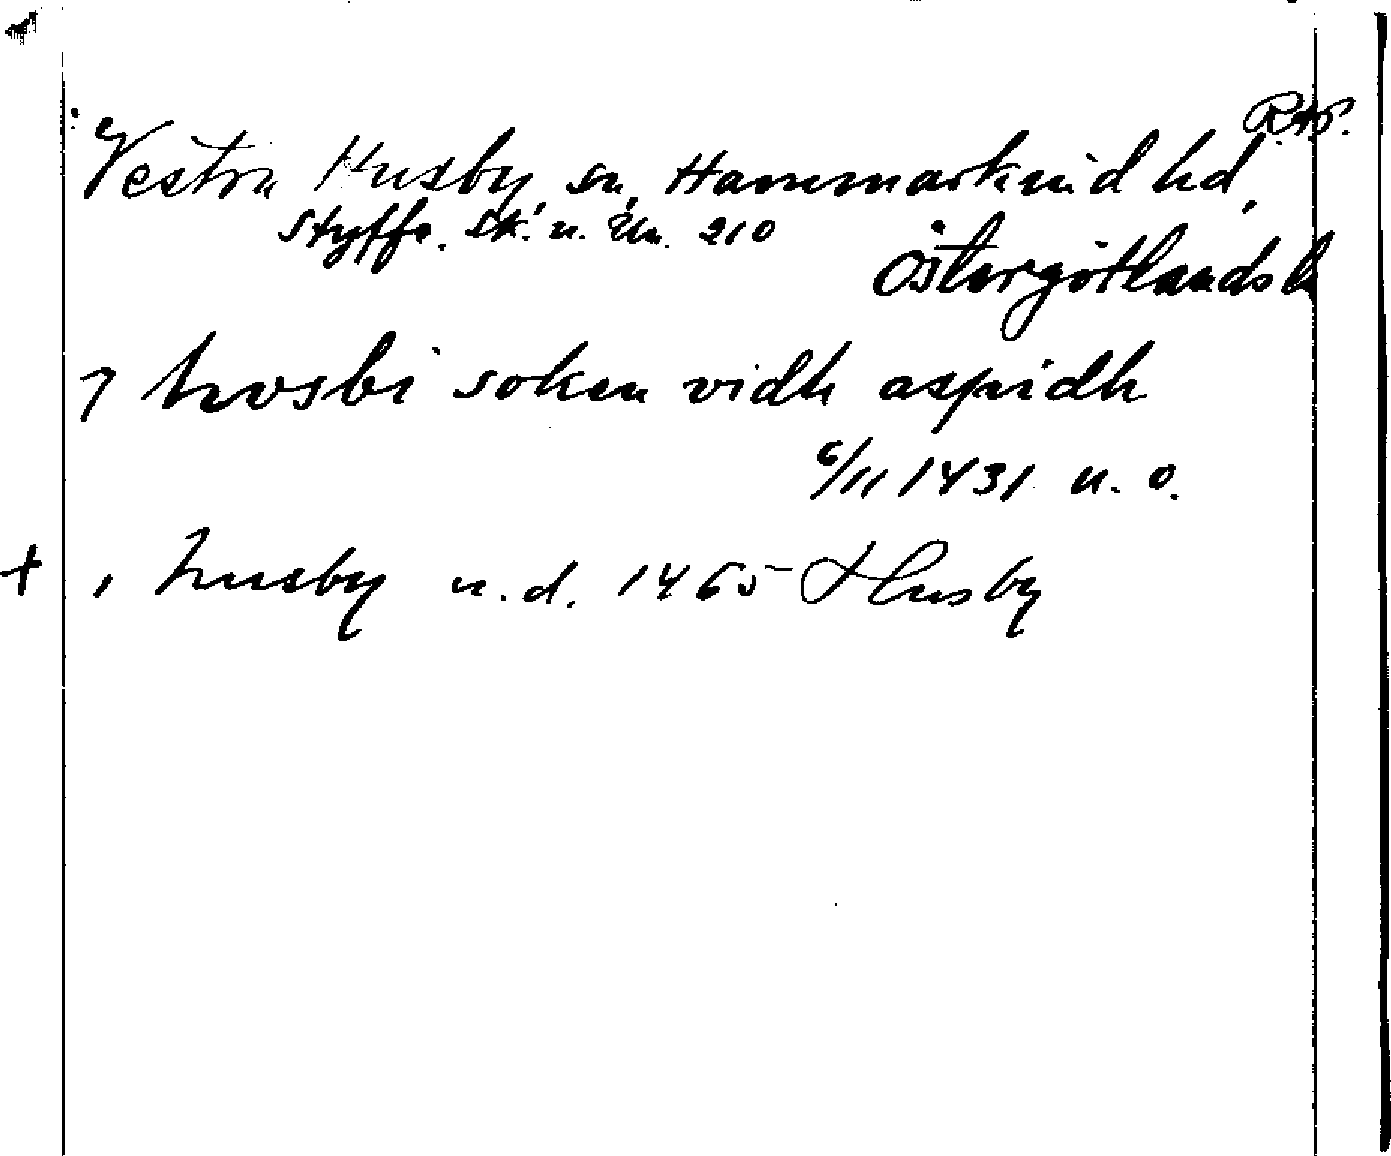 R.A.P.
Vestra Husby, sn, Hammarkind hd,
Styffe. Sk. u. Un. 210
Östergötlands l.
7 hosbi soken vidh aspidh
6/11 1431 u. o.
+ , husby u. d. 1465 Husby